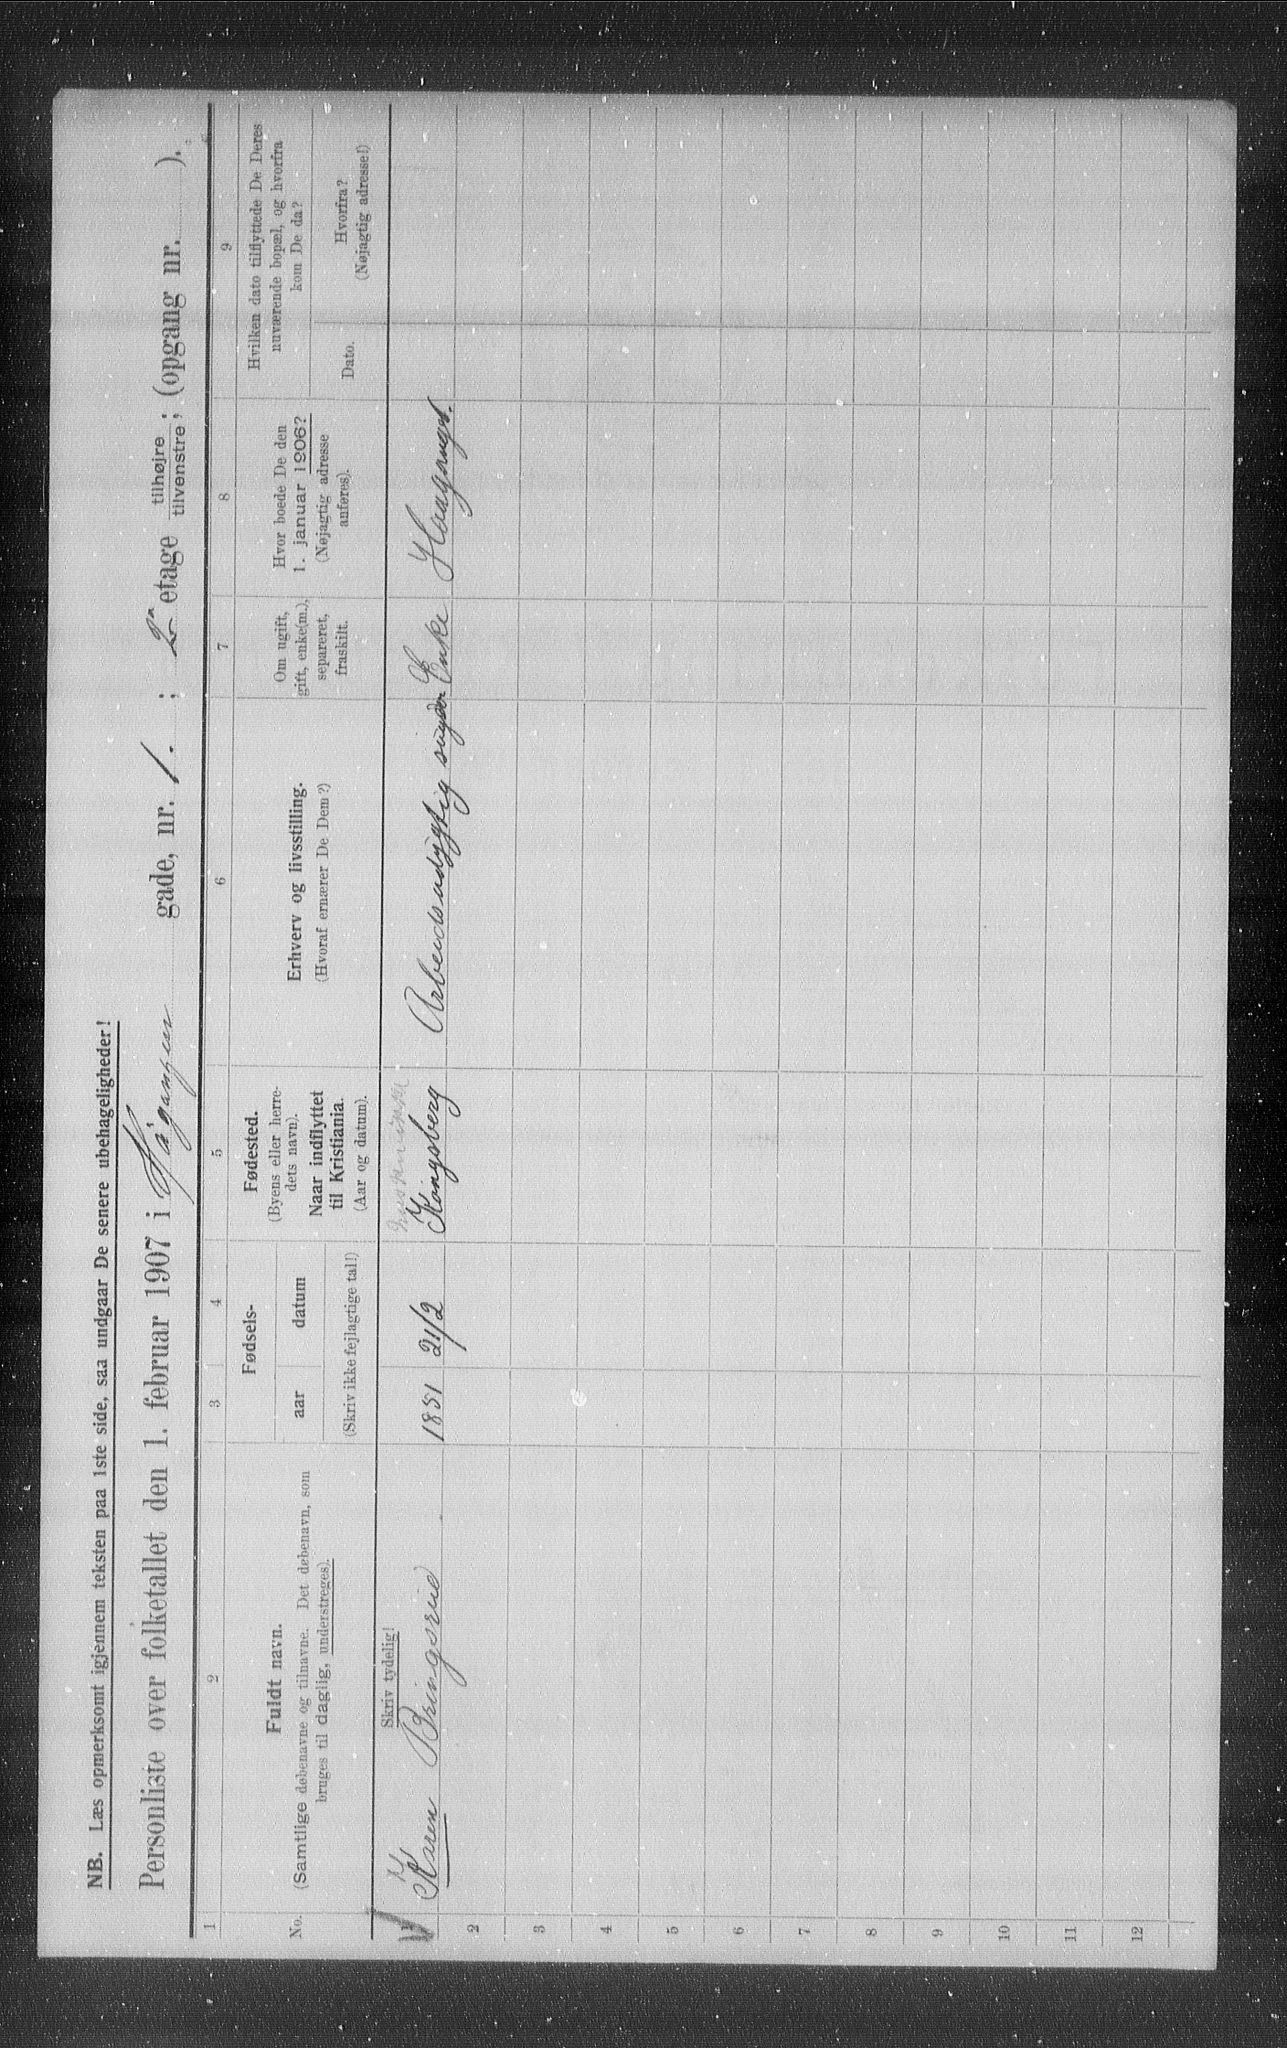 NB. Læs opmerksomt igjennem teksten paa 1ste side, saa undgaar De senere ubehageligheder!
Personliste over folketallet den 1. februar 1907 i Hågangen gade, nr. 1. ; 2 etage tilhøjre tilvenstre; (opgang nr. ).
1 2 3 4 5 6 7 8 9
No.
Fuldt navn.
(Samtlige døbenavne og tilnavne. Det døbenavn, som
bruges til daglig, understreges).
Fødsels-
aar datum
(Skriv ikke fejlagtige tal!)
Fødested.
(Byens eller herre-
dets navn).
Naar indflyttet
til Kristiania.
(Aar og datum).
Erhverv og livsstilling.
(Hvoraf ernærer De Dem?)
Om ugift,
gift, enke(m.),
separeret,
fraskilt.
Hvor boede De den
1. januar 1906?
(Nøjagtig adresse
anføres).
Hvilken dato tilflyttede De Deres
nuværende bopæl, og hvorfra
kom De da?
Dato.
Hvorfra?
(Nøjagtig adresse!)
Skriv tydelig!
1 Karen Bringsrud 1851 21/2 Kongsberg Arbeidsudygtig Enke
2
3
4
5
6
7
8
9
10
11
12